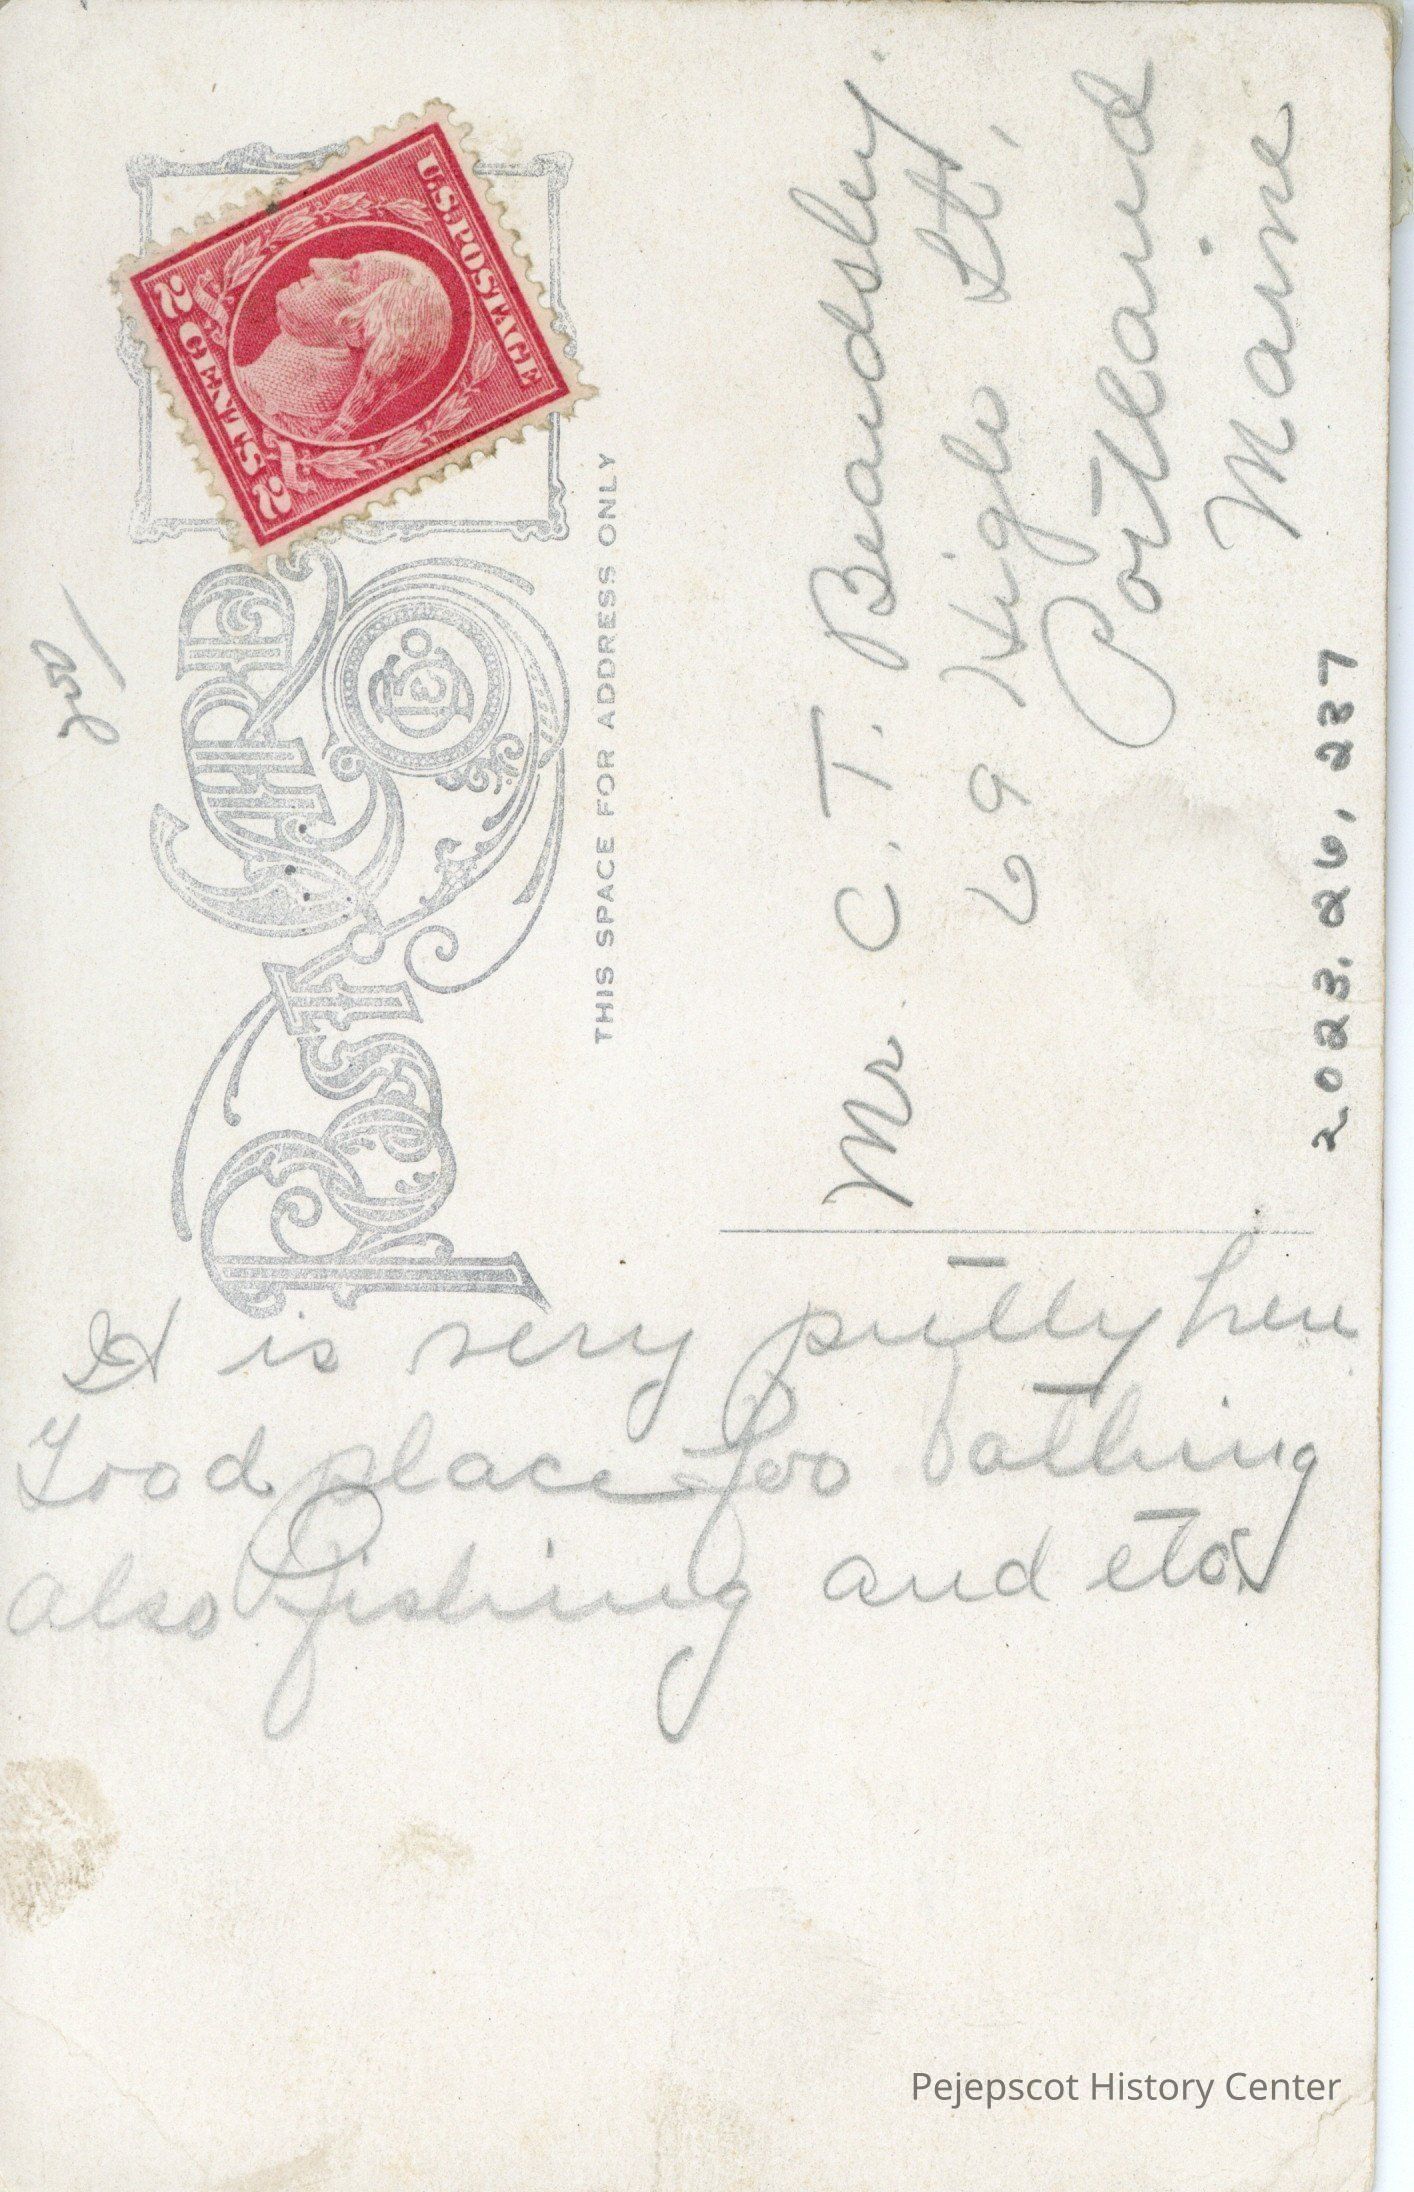 U.S. POSTAGE
2 CENTS 2
250/
POST CARD
THIS SPACE FOR ADDRESS ONLY
Mr. C. T. Beardsley.
69 High St,
Portland
Maine
2023.26.237
It is very pretty here
Good place for bathing
also fishing and etc.
Pejepscot History Center